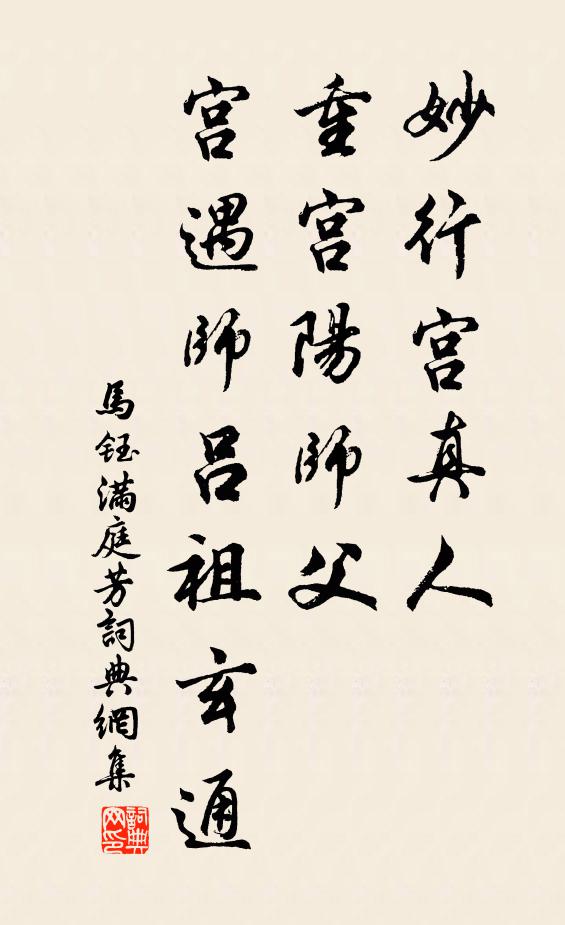 妙行宫真人
重宫陽師父
宫遇師吕祖玄通
馬鈺滿庭芳詞典網集
詞典
网印